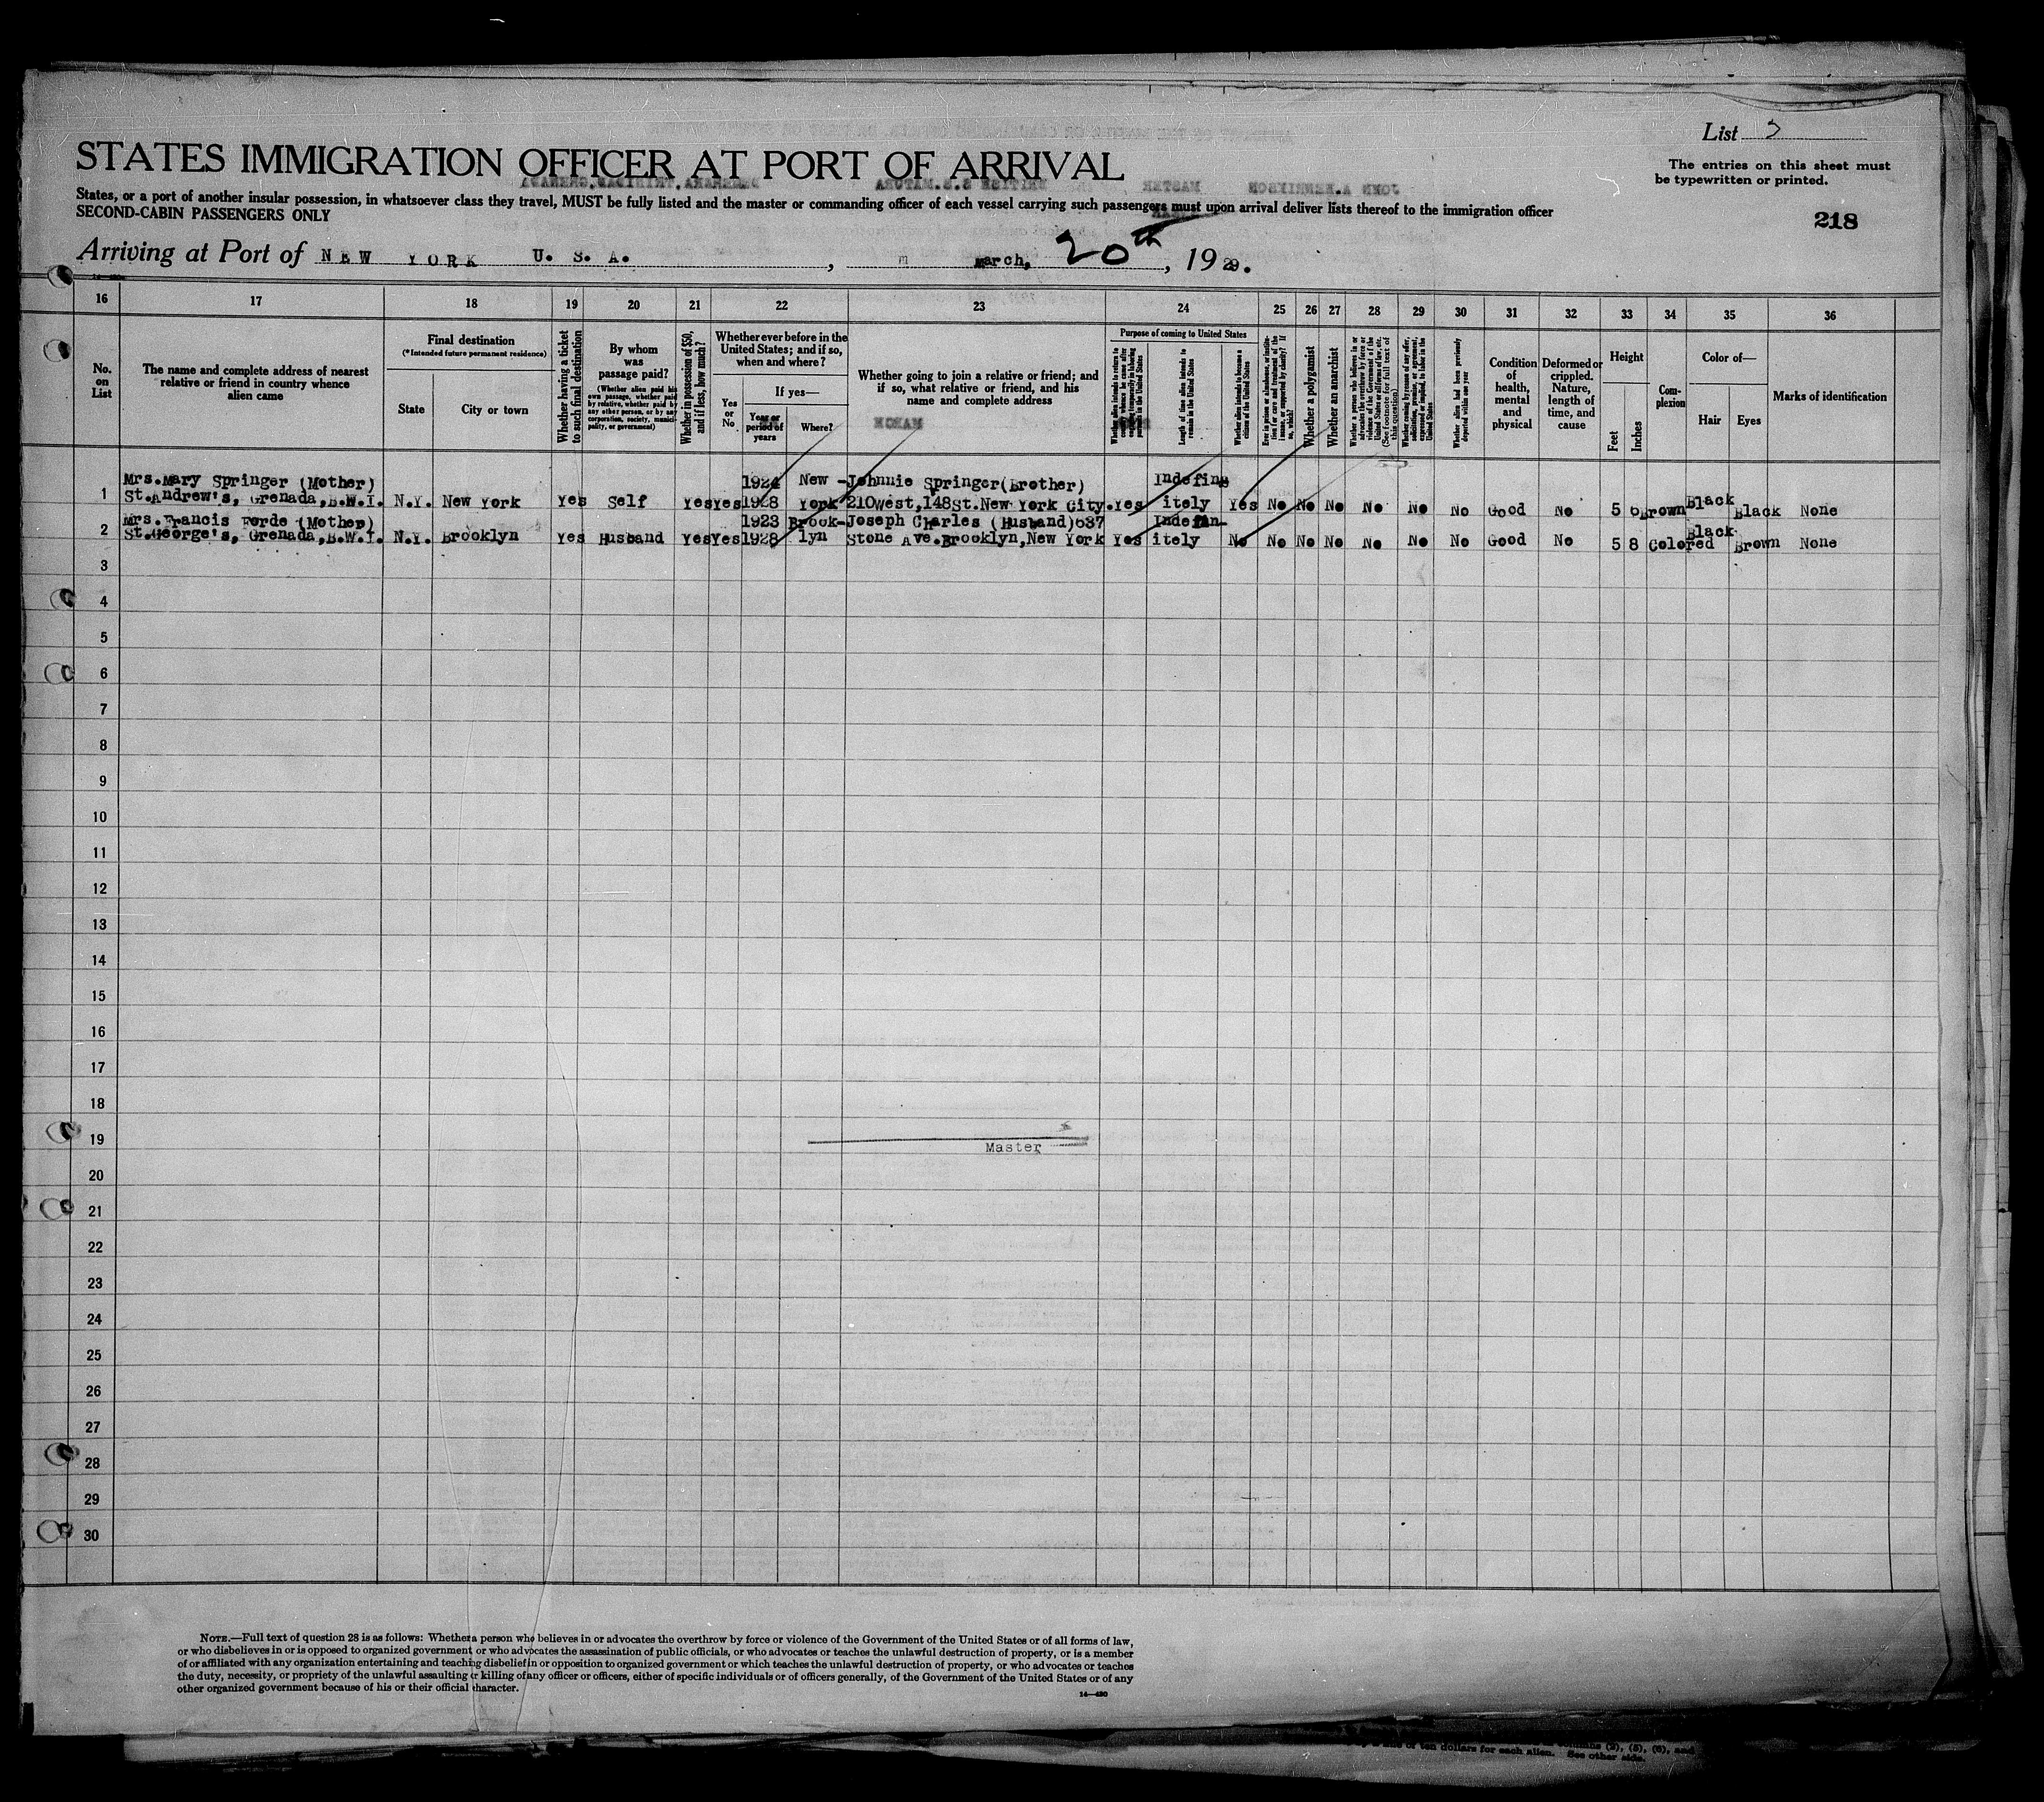 List 3
STATES IMMIGRATION OFFICER AT PORT OF ARRIVAL
The entries on this sheet must
be typewritten or printed.
States, or a port of another insular possession, in whatsoever class they travel, MUST be fully listed and the master or commanding officer of each vessel carrying such passengers must upon arrival deliver lists thereof to the immigration officer
SECOND-CABIN PASSENGERS ONLY
218
Arriving at Port of NEW YORK U. S. A. , March, 20th , 1929.
16 17 18 19 20 21 22 23 24 25 26 27 28 29 30 31 32 33 34 35 36
No. on List
The name and complete address of nearest relative or friend in country whence alien came
Final destination
(*Intended future permanent residence)
State
City or town
Whether having a ticket to such final destination
By whom was passage paid?
(Whether alien paid his own passage, whether paid by relative, whether paid by any other person, or by any corporation, society, municipality, or government)
Whether in possession of $50, and if less, how much?
Whether ever before in the United States; and if so, when and where?
Yes or No
If yes—
Year or period of years
Where?
Whether going to join a relative or friend; and if so, what relative or friend, and his name and complete address
Purpose of coming to United States
Whether alien intends to return to country whence he came after engaging temporarily in laboring pursuits in the United States
Length of time alien intends to remain in the United States
Whether alien intends to become a citizen of the United States
Ever in prison or almshouse, or institution for care and treatment of the insane, or supported by charity? If so, which?
Whether a polygamist
Whether an anarchist
Whether a person who believes in or advocates the overthrow by force or violence of the Government of the United States or all forms of law, etc. (See footnote for full text of this question)
Whether coming by reason of any offer, solicitation, promise, or agreement, expressed or implied, to labor in the United States
Whether alien had been previously deported within one year
Condition of health, mental and physical
Deformed or crippled. Nature, length of time, and cause
Height
Feet
Inches
Complexion
Color of—
Hair
Eyes
Marks of identification
1 Mrs.Mary Springer (Mother) 1924 New -Johnnie Springer(Brother) Indefin
St.Andrew's, Grenada,B.W.I. N.Y. New York Yes Self Yes Yes 1928 York 210West,148St.New York City. Yes itely Yes No No No No No No Good No 5 6 Brown Black Black None
2 Mrs.Francis Forde (Mother) 1923 Brook-Joseph Charles (Husband)687 Indefin-
St.George's, Grenada,B.W.I. N.Y. Brooklyn Yes Husband Yes Yes 1928 lyn Stone Ave.Brooklyn,New York Yes itely No No No No No No No Good No 5 8 Colored Black Brown None
3
4
5
6
7
8
9
10
11
12
13
14
15
16
17
18
19
Master
20
21
22
23
24
25
26
27
28
29
30
NOTE.—Full text of question 28 is as follows: Whether a person who believes in or advocates the overthrow by force or violence of the Government of the United States or of all forms of law,
or who disbelieves in or is opposed to organized government or who advocates the assassination of public officials, or who advocates or teaches the unlawful destruction of property, or is a member
of or affiliated with any organization entertaining and teaching disbelief in or opposition to organized government or which teaches the unlawful destruction of property, or who advocates or teaches
the duty, necessity, or propriety of the unlawful assaulting or killing of any officer or officers, either of specific individuals or of officers generally, of the Government of the United States or of any
other organized government because of his or their official character.
14—480
of ten dollars for each alien. See other side.